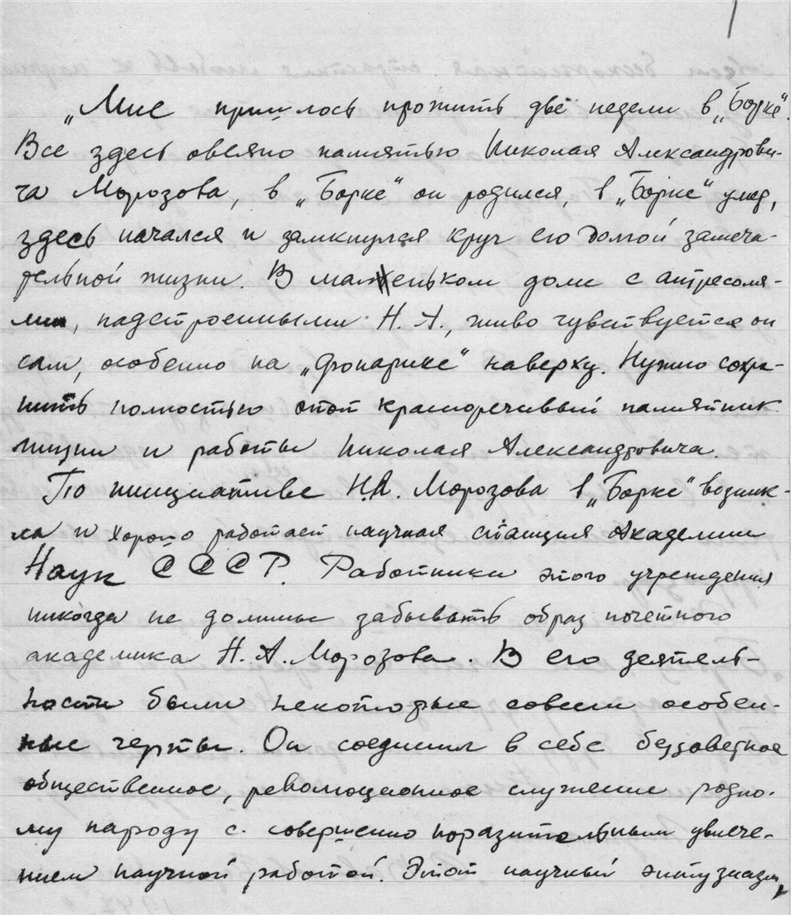 „Мне пришлось прожить две недели в „Борке“.
Все здесь овеяно памятью Николая Александрови-
ча Морозова, в „Борке“ он родился, в „Борке“ умер,
здесь начался и замкнулся круг его долгой замеча-
тельной жизни. В маленьком доме с антресоля-
ми, надстроенными Н. А., живо чувствуется он
сам, особенно на „фонарике“ наверху. Нужно сохра-
нить полностью этот красноречивый памятник
жизни и работы Николая Александровича.
По инициативе Н.А. Морозова в „Борке“ возник-
ла и хорошо работает научная станция Академии
Наук СССР. Работники этого учреждения
никогда не должны забывать образ почетного
академика Н. А. Морозова. В его деятель-
ности были некоторые совсем особен-
ные черты. Он соединил в себе беззаветное
общественное, революционное служение родно-
му народу с совершенно поразительным увлече-
нием научной работой. Этот научный энтузиазм,